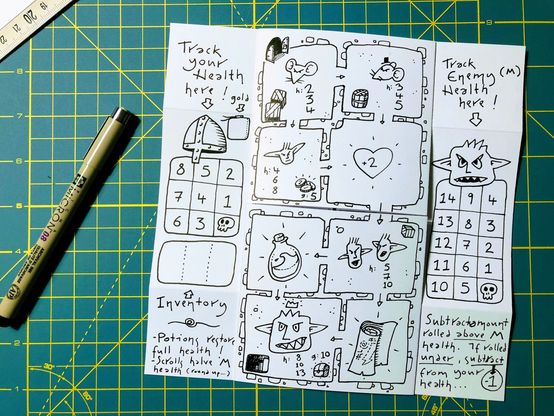 Track
your
Health
here!
gold
8 5 2
7 4 1
6 3
Inventory
-Potions restore
full health!
-Scrolls halve M
health (round up)
h: 2
3
4
h: 3
4
5
h: 4
6
8
g: 5
+2
h: 5
7
10
h: 8
10
13
g: 10
Track
Enemy (M)
Health
here!
14 9 4
13 8 3
12 7 2
11 6 1
10 5
Subtract amount
rolled above M
health. If rolled
under, subtract
from your
health...
-1
MICRON 08